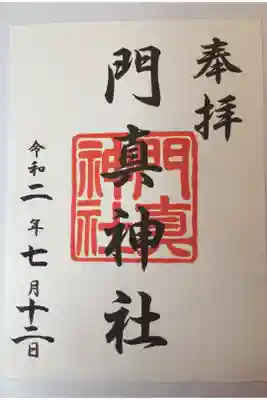 奉拝
門真神社
門真
神社
令和二年七月十二日